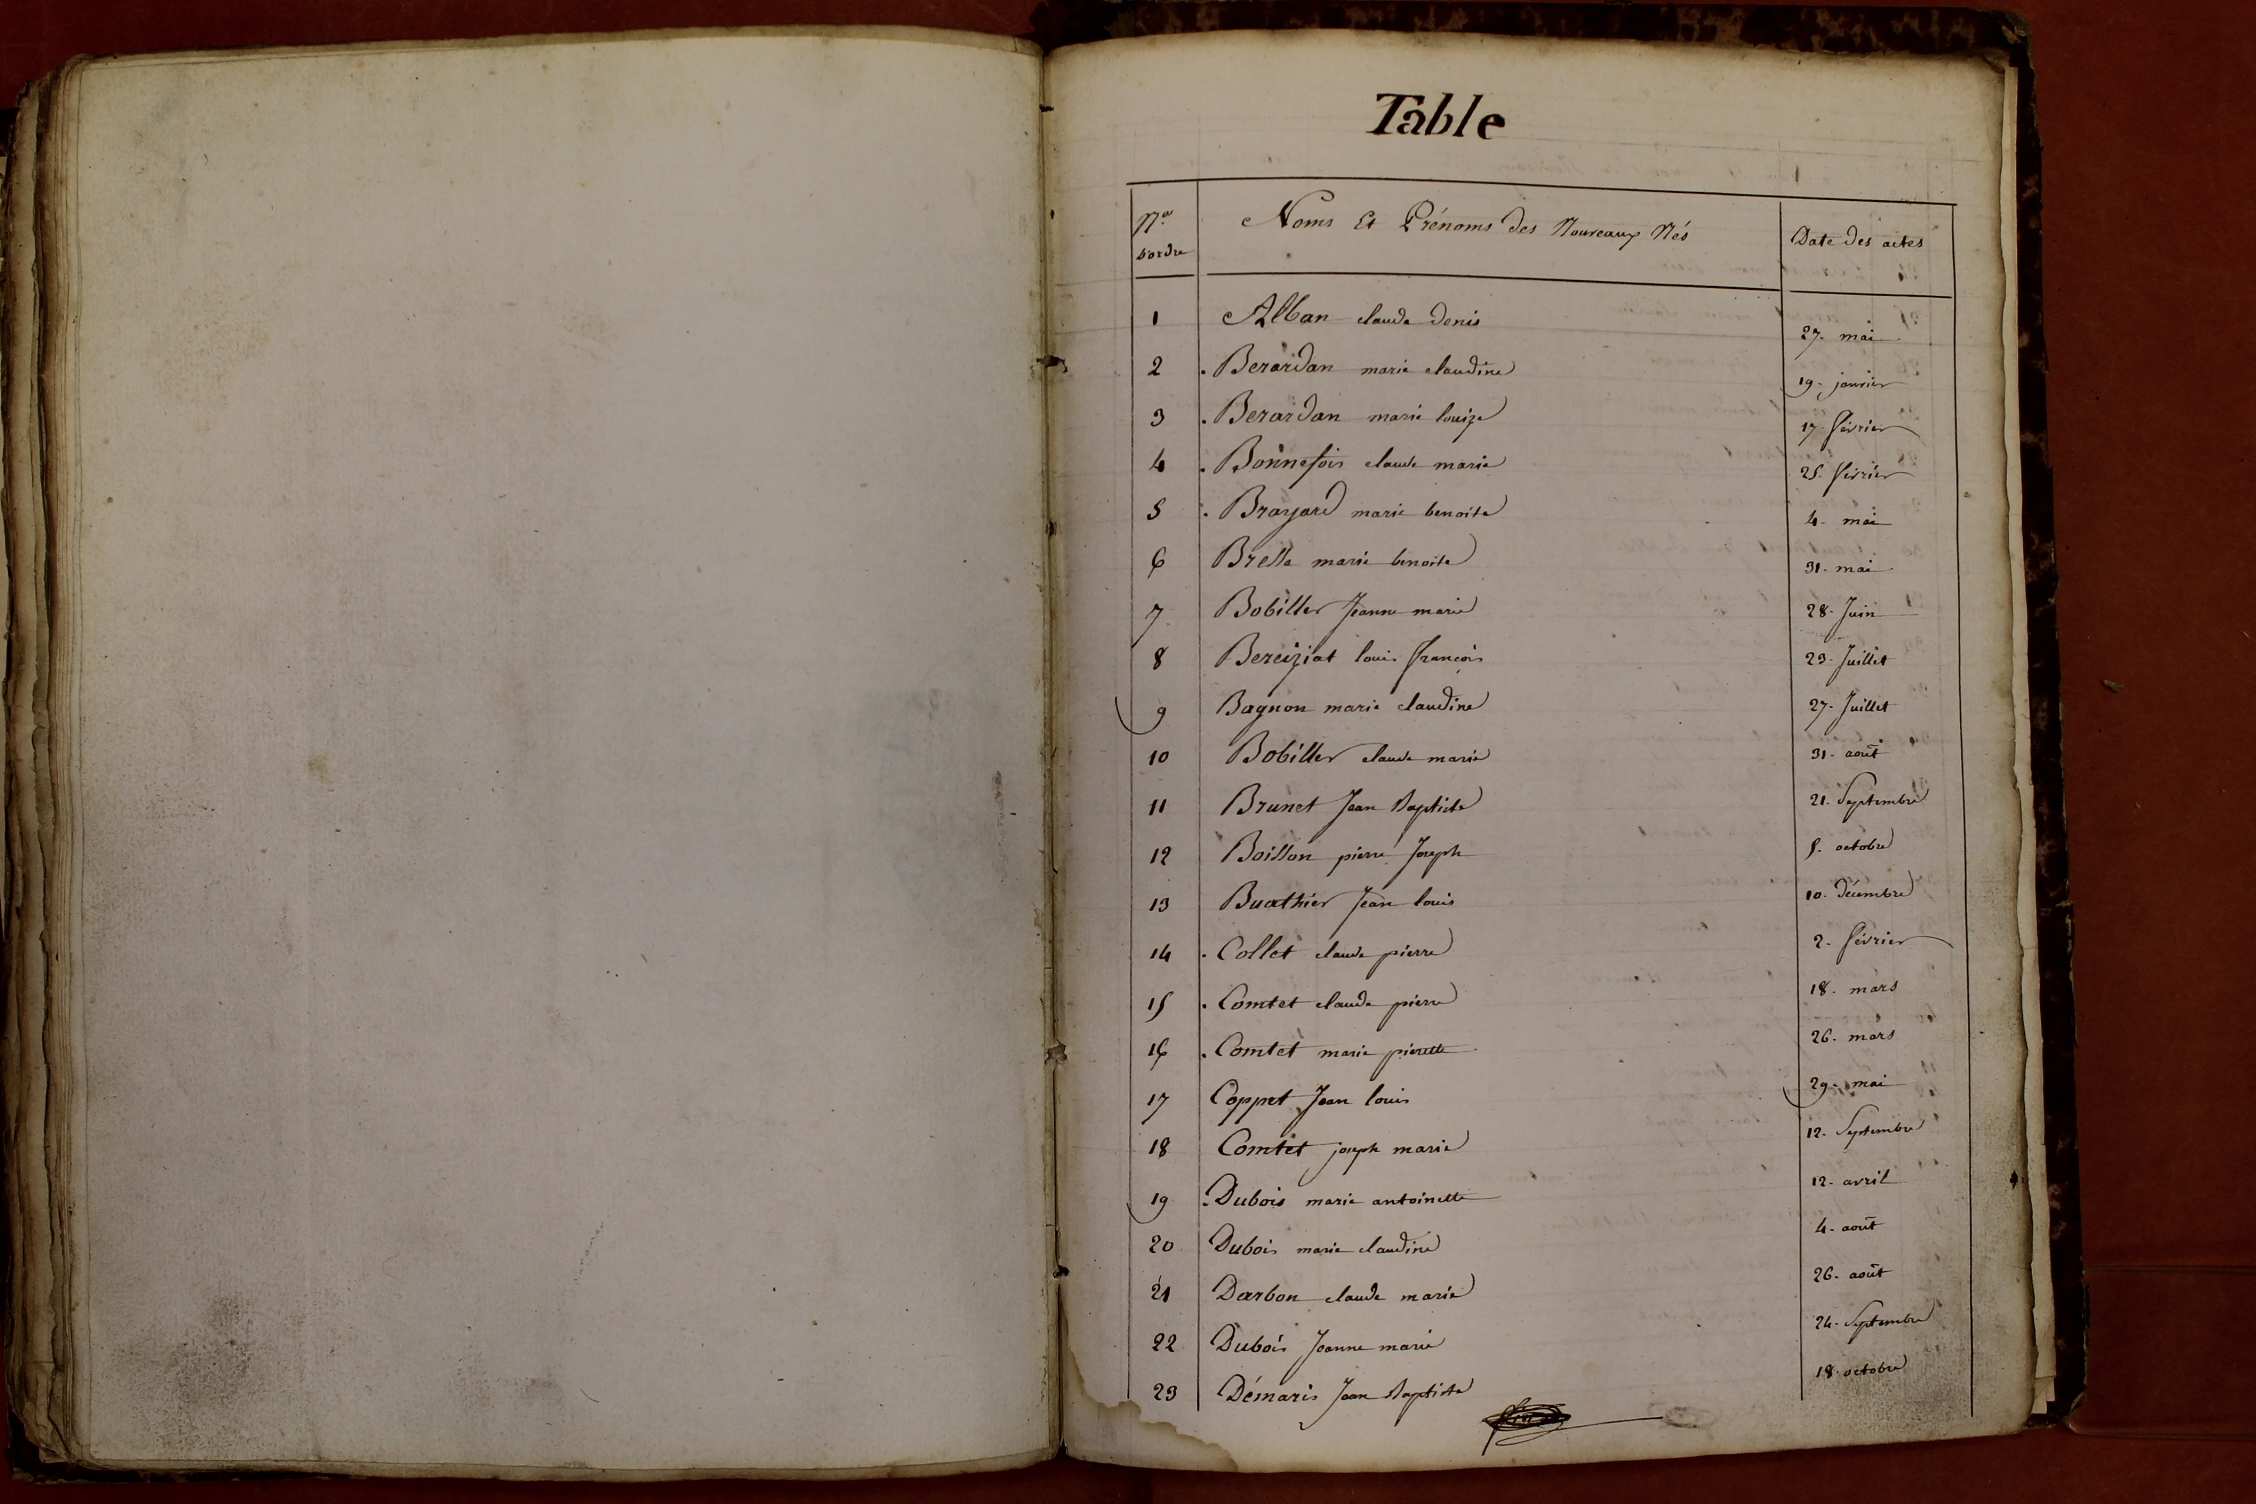 Table
Nos d'ordre Noms Et Prénoms des Nouveaux Nés Date des actes
1 Alban claude denis 27. mai
2 . Berardan marie claudine 19. janvier
3 . Berardan marie louize 17. février
4 . Bonnefois claude marie 25. février
5 . Brayard marie benoite 4. mai
6 Bresse marie benoite 31. mai
7 Bobiller Jeanne marie 28. Juin
8 Bereiziat louis françois 23. Juillet
9 Bagnon marie claudine 27. Juillet
10 Bobiller claude marie 31. août
11 Brunet Jean Baptiste 21. Septembre
12 Boisson pierre Joseph 5. octobre
13 Buathier Jean louis 10. Décembre
14 . Collet claude pierre 2. février
15 . Comtet claude pierre 18. mars
16 . Comtet marie pierette 26. mars
17 Coppet Jean louis 29. mai
18 Comtet joseph marie 12. Septembre
19 . Dubois marie antoinette 12. avril
20 Dubois marie claudine 4. août
21 Darbon claude marie 26. août
22 Dubois Jeanne marie 24. Septembre
23 Démaris Jean Baptiste 18. octobre